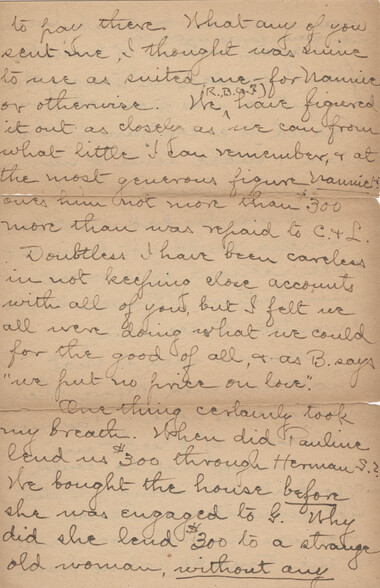 to pay there. What any of you
sent me, I thought was mine
to use as suited me - for Nannie
or otherwise. We (R.B.G.&I) have figured
it out as closely as we can from
what little I can remember, & at
the most generous figure Nannie
owes him not more than $300
more than was repaid to C.&L.
Doubtless I have been careless
in not keeping close accounts
with all of you, but I felt we
all were doing what we could
for the good of all, & as B. says
"we put no price on love".
One thing certainly took
my breath. When did Pauline
lend us $300 through Herman S.?
We bought the house before
she was engaged to G. Why
did she lend $300 to a strange
old woman, without any